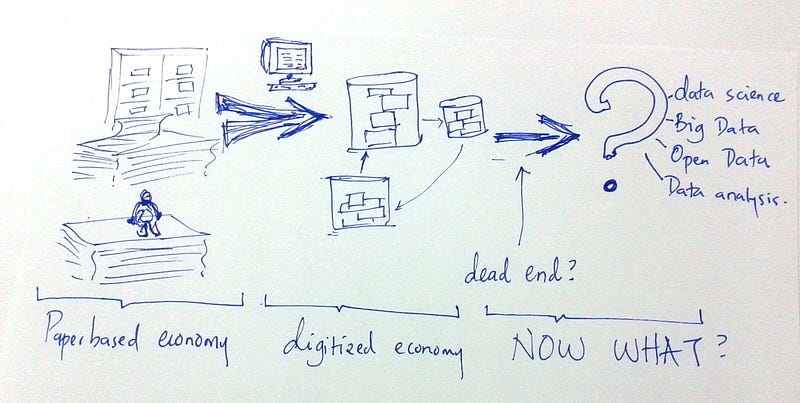 data science
Big Data
Open Data
Data analysis.
dead end?
Paperbased economy
digitized economy
NOW WHAT?